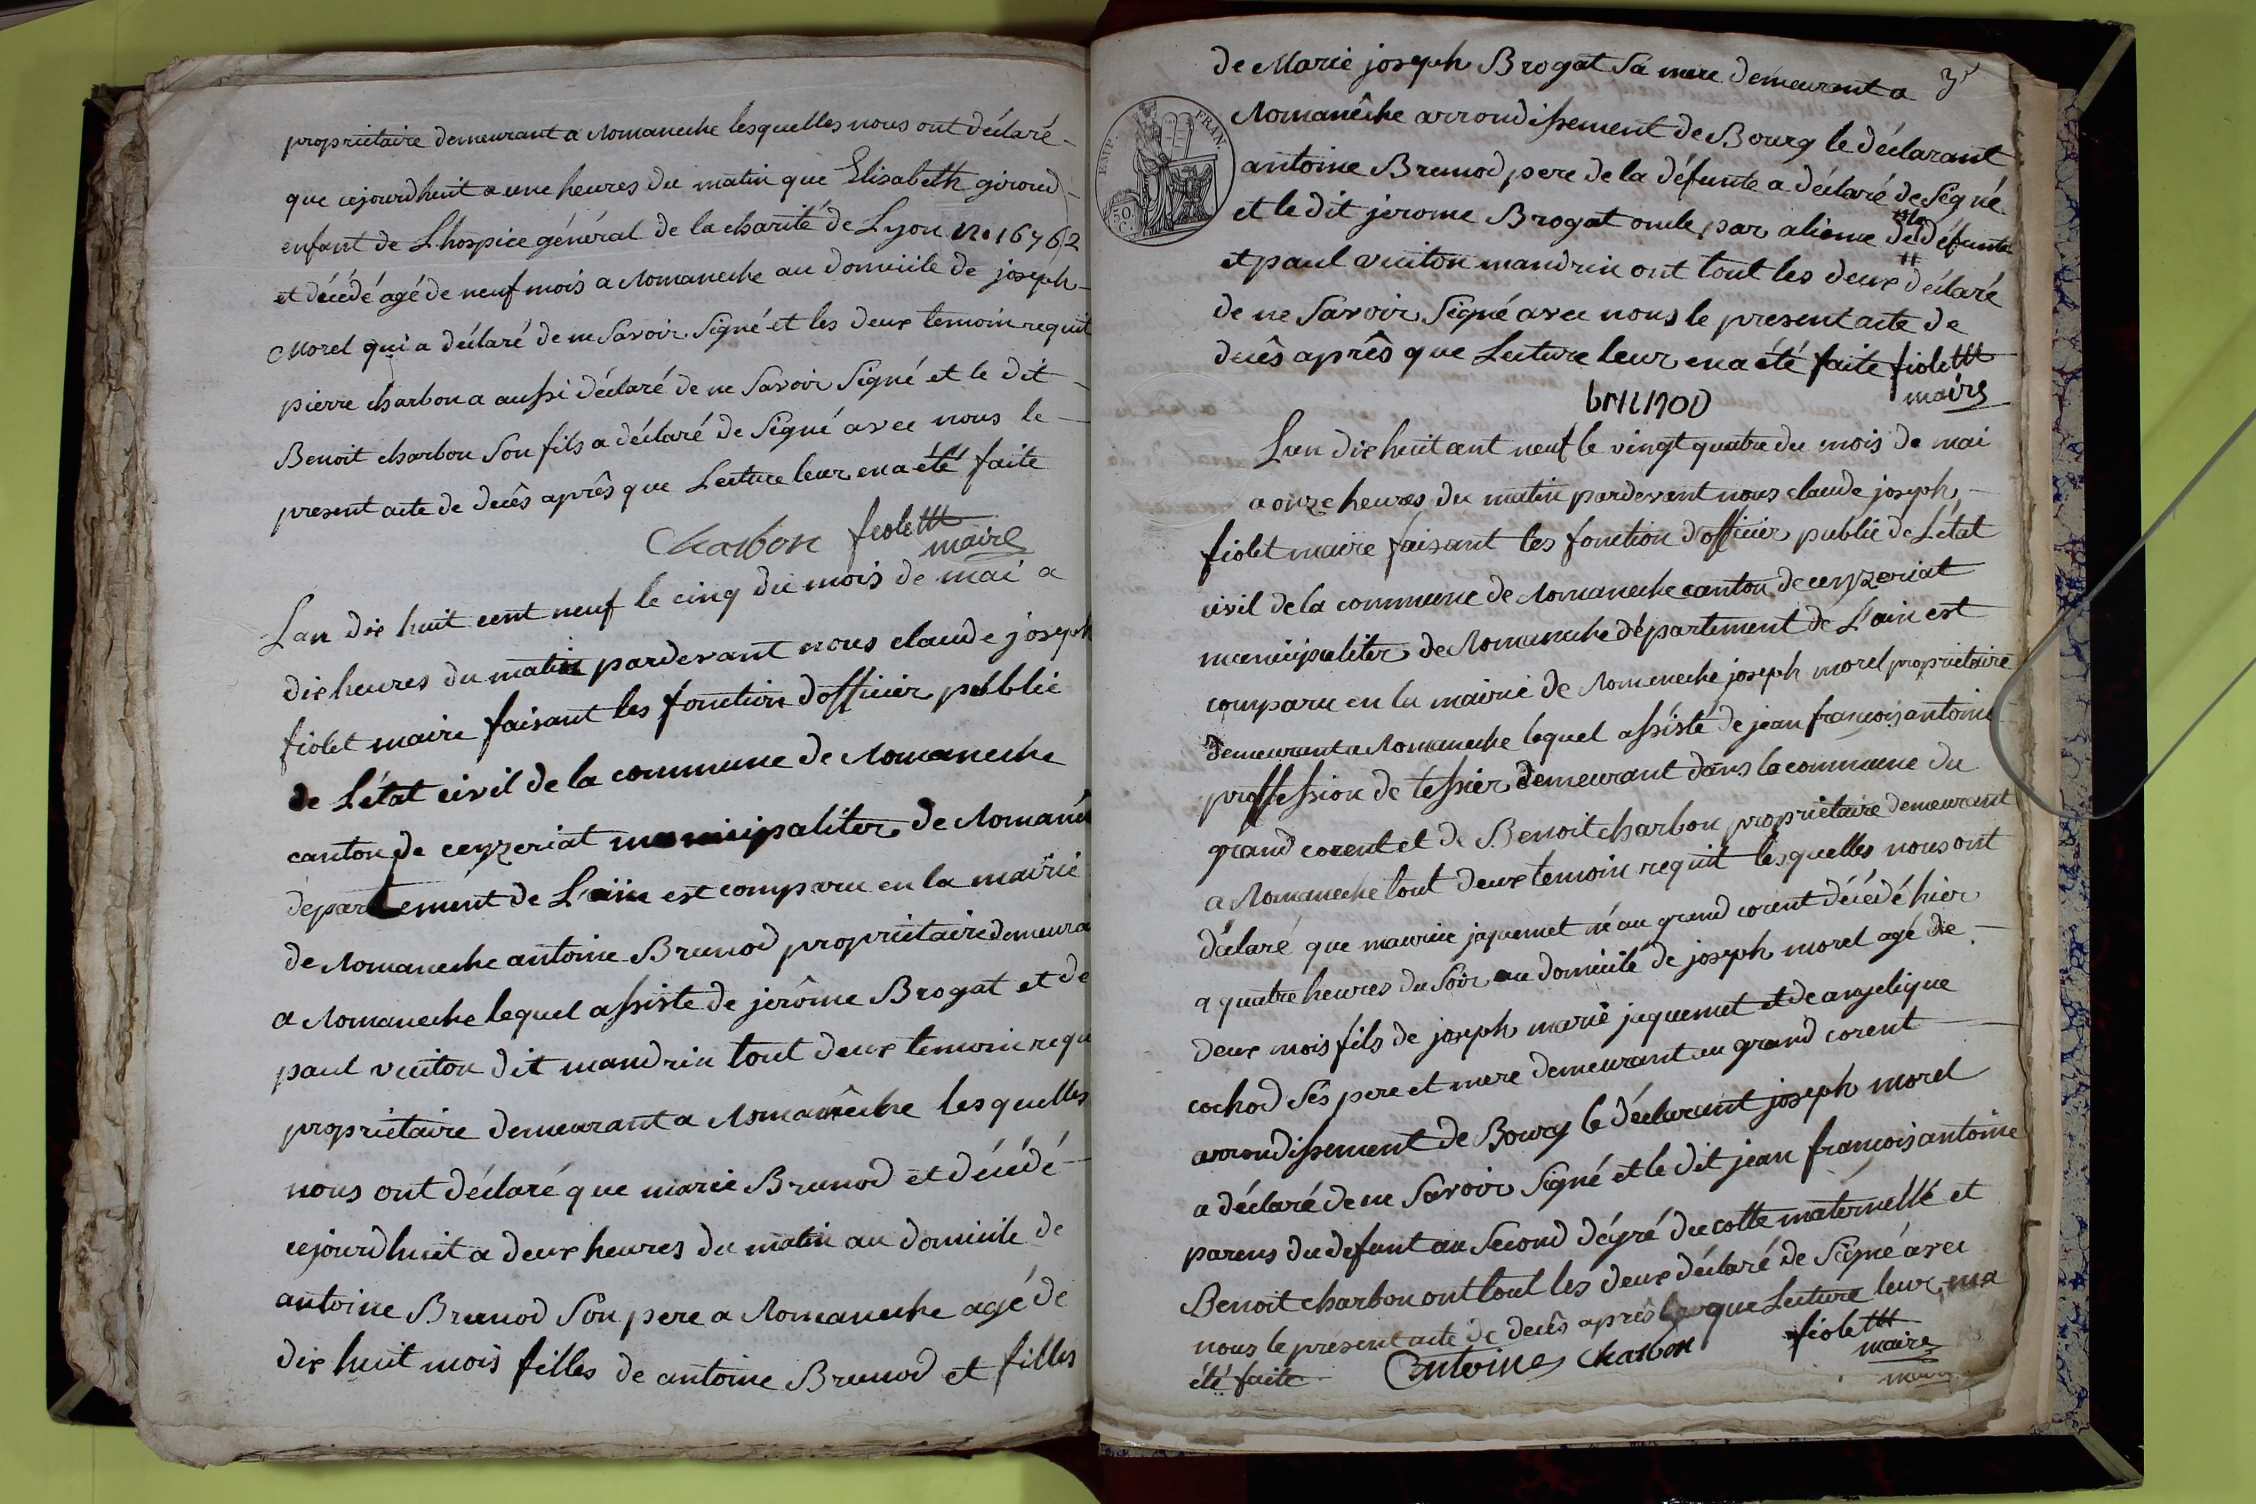 propriétaire demeurant a Romaneche lesquelles nous ont déclaré
que cejourdhuit a une heures du matin que Elisabeth giroud
enfant de L'hospice général de la charité de Lyon No 16762
et décédé agé de neuf mois a Romaneche au domicile de joseph
Morel qui a déclaré de ne Savoir Signé et les deux temoin requit
pierre charbon a aussi déclaré de ne Savoir Signé et le dit
Benoit charbon Son fils a déclaré de Signé avec nous le
present acte de decês aprês que Lecture leur en a été faite
Charbon fiolet
maire
Lan dix huit cent neuf le cinq du mois de mai a
dix heures du matin pardevant nous claude joseph
fiolet maire faisant les fonction dofficier public
de L'état civil de la commune de Romaneche
canton de ceyzeriat municipaliter de Romanê
departement de L'ain est comparu en la mairie
de Romaneche antoine Brunod propriétaire demeura
a Romaneche lequel assisté de jerôme Brogat et de
paul vuiton dit mandrin tout deux temoin requ
propriétaire demeurant a Romanêche lesquelles
nous ont déclaré que marie Brunod et décédé
cejourdhuit a deux heures du matin au domicile de
antoine Brunod Son pere a Romaneche agé de
dix huit mois filles de antoine Brunod et filles
3
de Marie joseph Brogat Sa mere demeurant a
Romanêche arrondissement de Bourg le déclarant
antoine Brunod pere de la défunte a déclaré de Signé
et le dit jerome Brogat oncle par aliance de la défunte
et paul vuiton mandrin ont tout les deux déclaré
de ne Savoir Signé avec nous le present acte de
decês aprês que Lecture leur en a été faite fiolet
maire
brunod
EMP. FRAN.
50. C.
Lan dix huit cent neuf le vingt quatre du mois de mai
a onze heures du matin pardevent nous claude joseph
fiolet maire faisant les fonction dofficier public de L'état
civil de la commune de Romaneche canton de ceyzeriat
municipaliter de Romaneche département de L'ain est
comparu en la mairie de Romeneche joseph morel propriétaire
demeurant a Romaneche lequel assisté de jean francois antoine
proffession de tessier demeurant dans la commune du
grand corent et de Benoit charbon propriétaire demeurant
a Romaneche tout deux temoin requit lesquelles nous ont
déclaré que maurice jaquemet né au grand corent décédé hier
a quatre heures du Soir au domicile de joseph morel agé de
deux mois fils de joseph marie jaquemet et de angelique
cochod Ses pere et mere demeurant au grand corent
arrondissement de Bourg le déclarant joseph morel
a déclaré de ne Savoir Signé et le dit jean francois antoine
parens du defunt au Second dégré du cotte maternelle et
Benoit charbon ont tout les deux déclaré de Signé avec
nous le présent acte de decês aprês que Lecture leur en a
été faite Antoine Charbon fiolet
maire